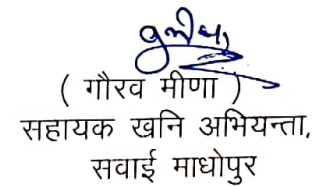 ( गौरव मीणा )
सहायक खनि अभियन्ता,
सवाई माधोपुर